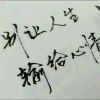 别让人生
输给心情